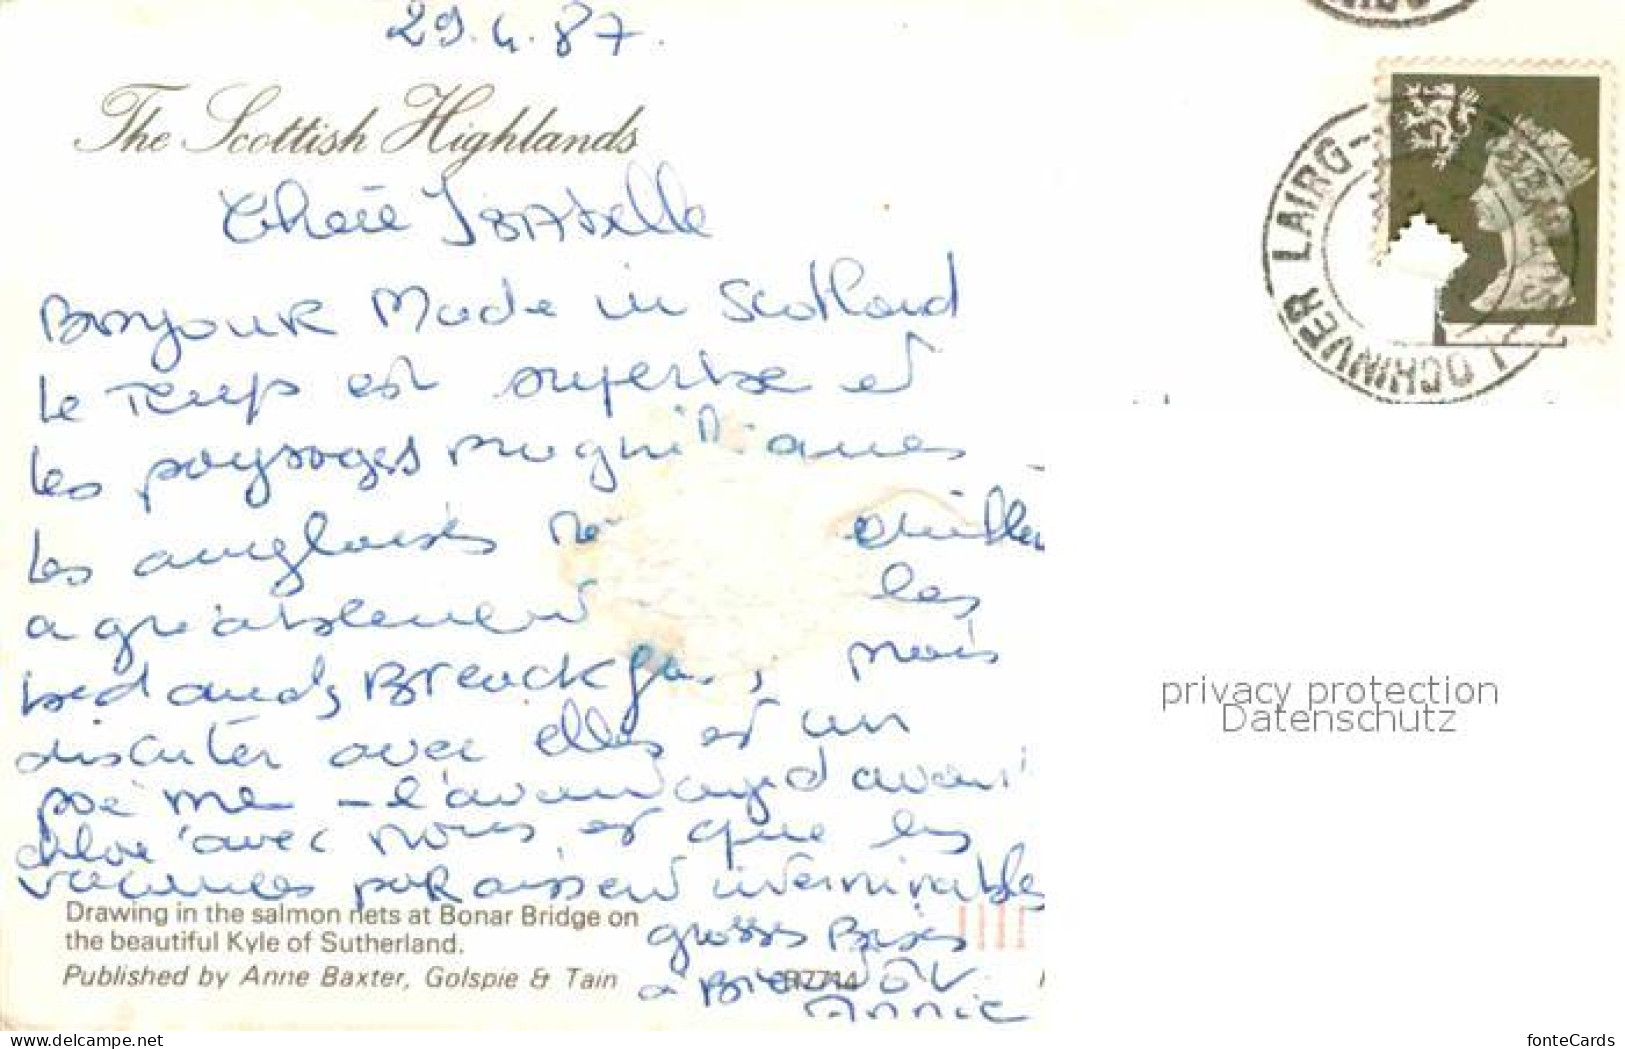 29.4.87.
The Scottish Highlands
Chère Isabelle
Bonjour Made in Scotland
le temps est superbe et
les paysages magnifiques
les anglaises
agréablement les
bed ands Breackfa , mais
discuter avec elles est un
poème - l'avantage d'avoir
chloe avec nous est que les
vacances paraissent interminables
Drawing in the salmon nets at Bonar Bridge on
the beautiful Kyle of Sutherland.
grosses Bises
Published by Anne Baxter, Golspie & Tain
a Bientôt
Annie
LAIRG-
LOCHINVER
privacy protection
Datenschutz
www.delcampe.net
fonteCards